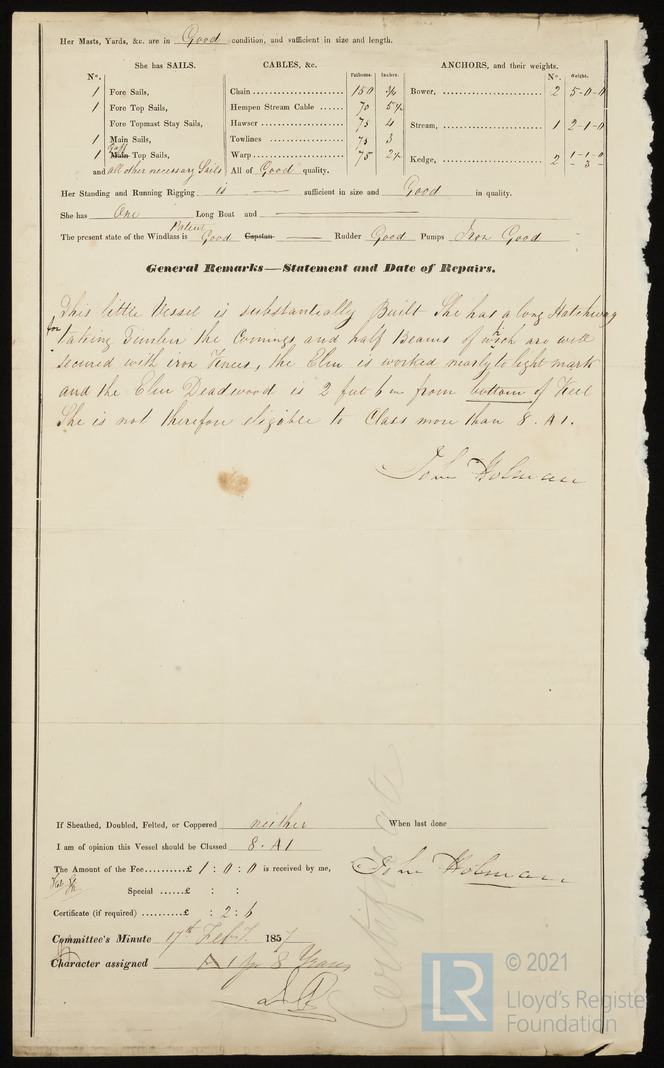 Her Masts, Yards, &c. are in Good condition, and sufficient in size and length.
She has SAILS. CABLES, &c. ANCHORS, and their weights.
Nº. Fathoms. Inches. Nº. Weight.
1 Fore Sails, Chain 150 Bower, 2 5-0-0
1 Fore Top Sails, Hempen Stream Cable 70
Fore Topmast Stay Sails, Hawser 75 4 Stream, 1 2-1-0
1 Main Sails, Towlines 75 3
1 Gaff Main Top Sails, Warp 75 Kedge, 2 1-1-0
and all other necessary Sails All of Good quality. -3-
Her Standing and Running Rigging is sufficient in size and Good in quality.
She has One Long Boat and
The present state of the Windlass is Patent Good Capstan Rudder Good Pumps Iron Good
General Remarks—Statement and Date of Repairs.
This little Vessel is substantially Built She has a long Hatchway
for taking Timber the Comings and half Beams of wch are well
secured with iron Knees, the Elm is worked nearly to light mark
and the Elm Deadwood is 2 feet 6 in from bottom of Keel
She is not therefore eligible to Class more than 8. A1.
John Holman
If Sheathed, Doubled, Felted, or Coppered neither When last done
I am of opinion this Vessel should be Classed 8. A1
The Amount of the Fee..........£ 1 : 0 : 0 is received by me,
John Holman
Special ......£ : :
Certificate (if required) ..........£ : 2 : 6
Committee's Minute 17th Feby 1857
Character assigned A 1 for 8 Years
Certificate
© 2021
LR
Lloyd's Register
Foundation